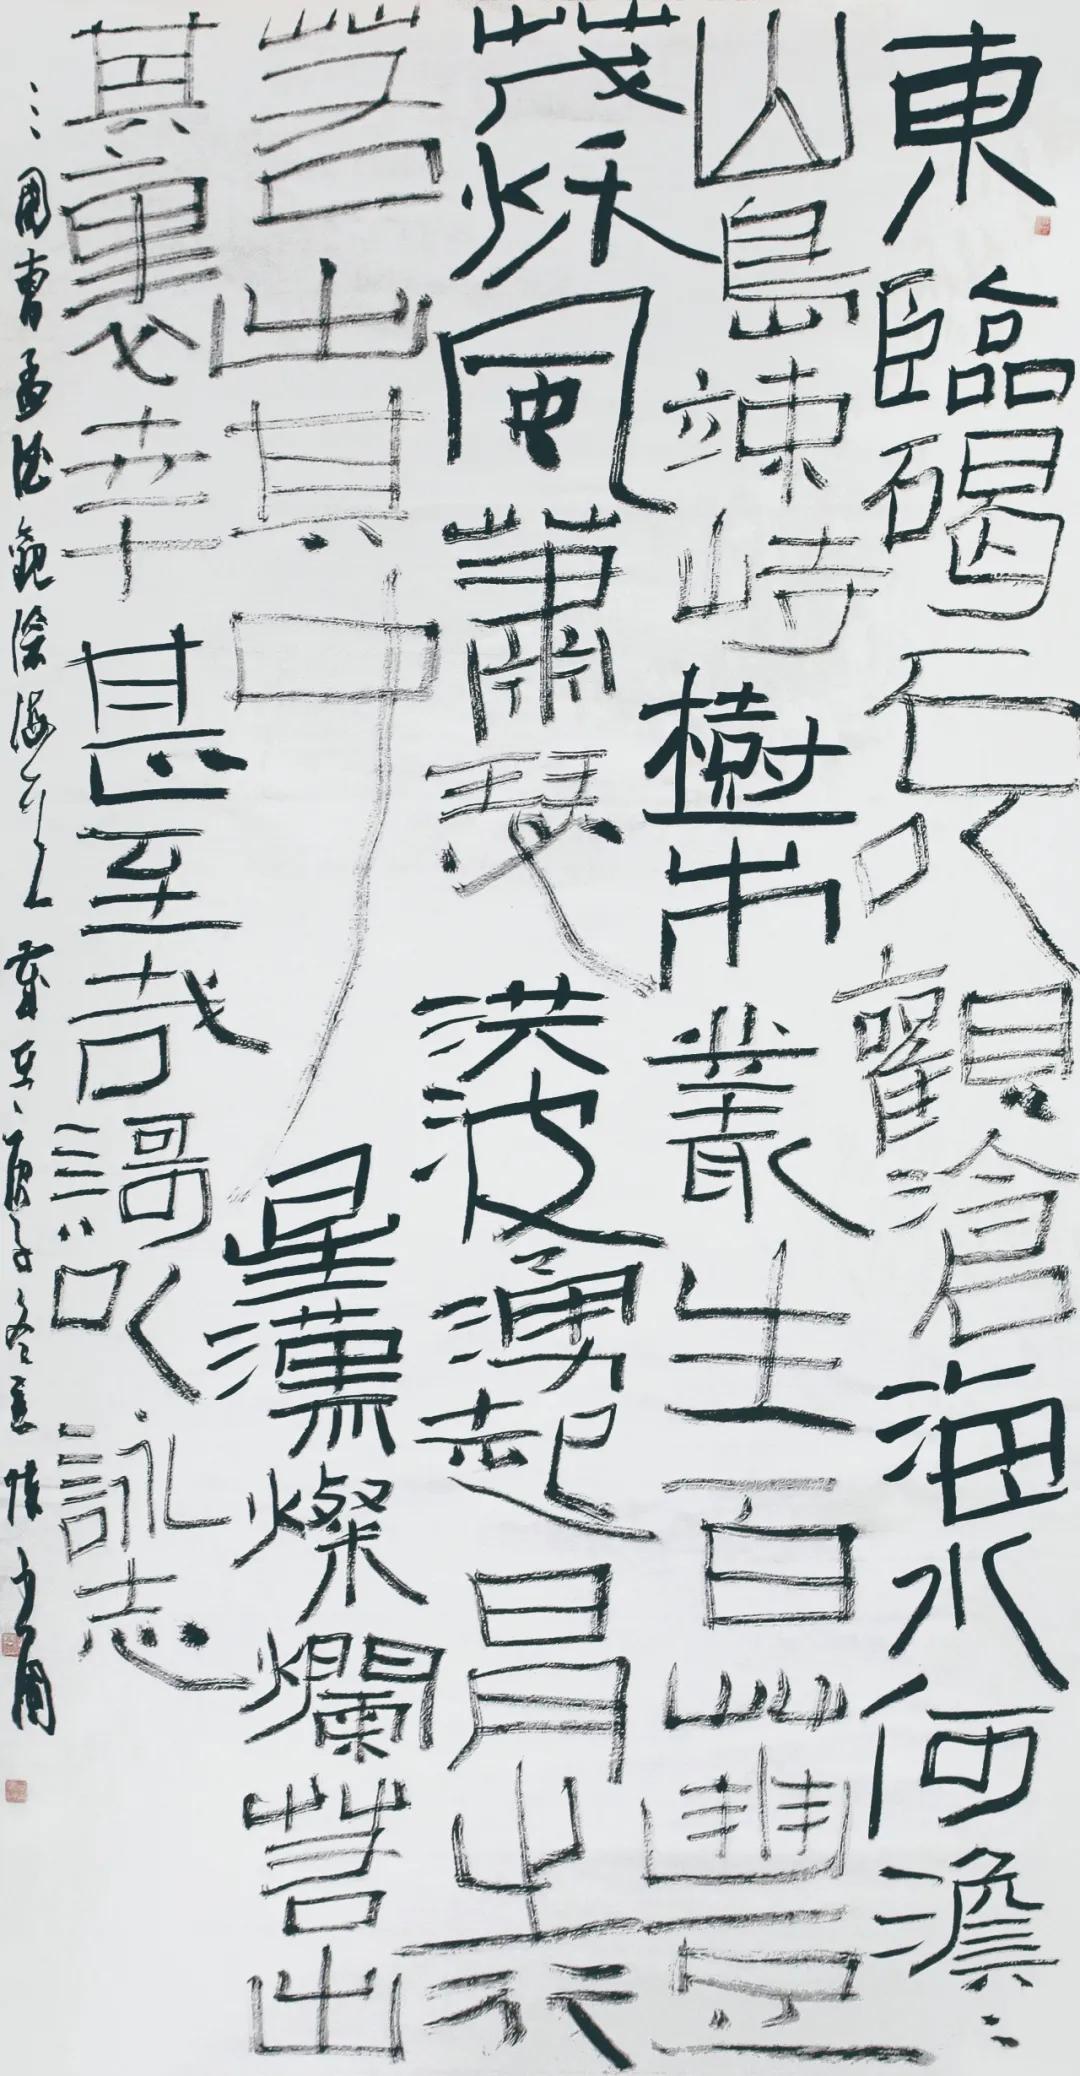 東臨碣石以觀滄海水何澹〻
山島竦峙樹木叢生百艸豐
茂秋風蕭瑟洪波湧起日月之行
若出其中星漢燦爛若出
其裏幸甚至哉謌以詠志
三國曹孟德觀滄海 歲在庚子冬